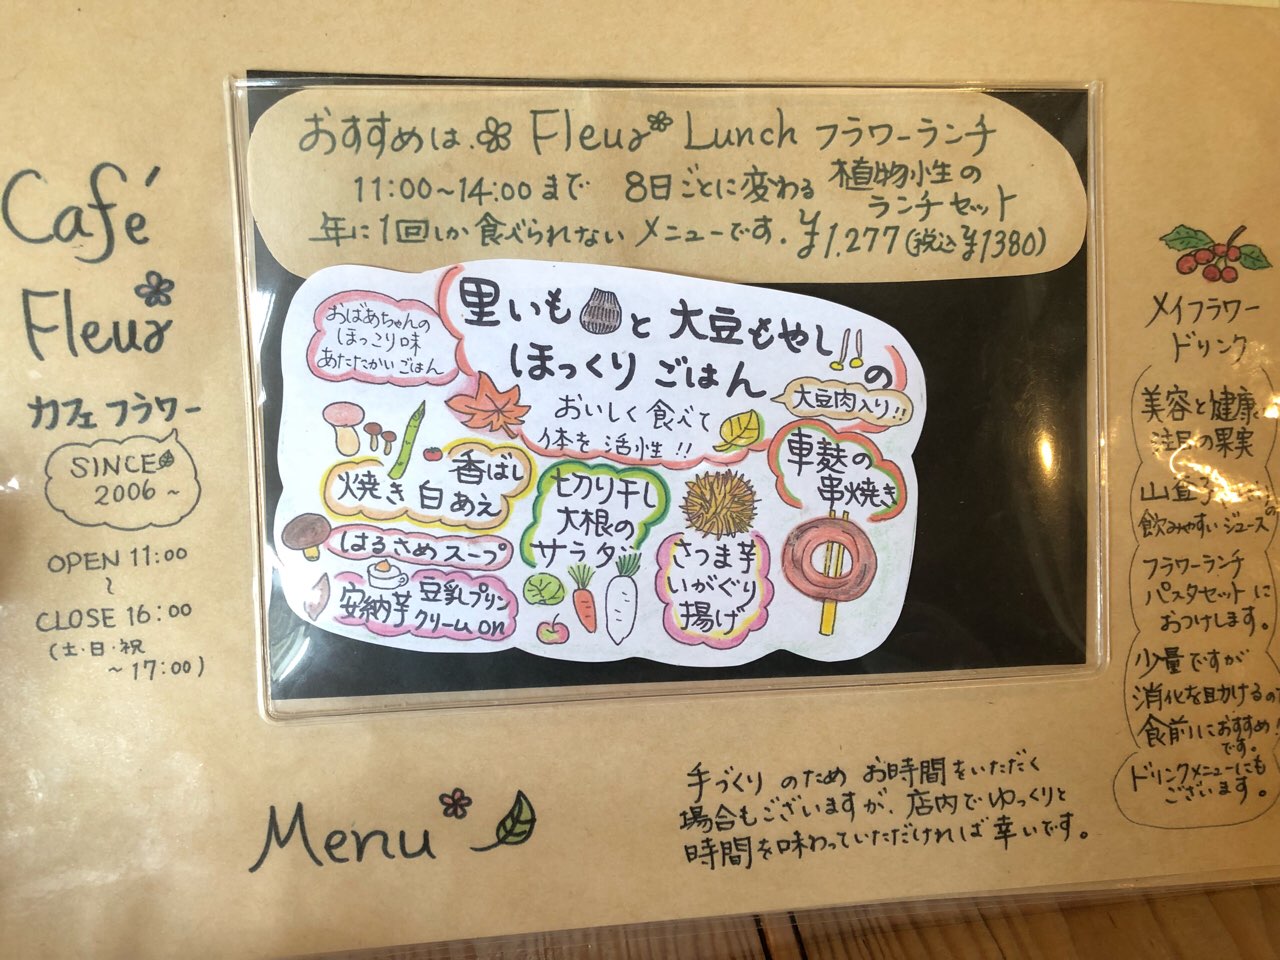 Café
Fleur
カフェフラワー
SINCE
2006~
OPEN 11:00
~
CLOSE 16:00
(土・日・祝
~17:00)
おすすめは Fleur Lunch フラワーランチ
11:00~14:00まで 8日ごとに変わる 植物性の
ランチセット
年に1回しか食べられないメニューです. ¥1.277(税込¥1380)
おばあちゃんの
ほっこり味
あたたかいごはん
里いもと大豆もやしの
ほっくりごはん
大豆肉入り!!
おいしく食べて
体を活性!!
香ばし
焼き白あえ
はるさめスープ
安納芋 豆乳プリン
クリームon
切り干し
大根の
サラダ
さつま芋
いがぐり
揚げ
車麩の
串焼き
メイフラワー
ドリンク
美容と健康に
注目の果実
山査子
飲みやすいジュース
フラワーランチ
パスタセットに
おつけします。
少量ですが
消化を助けるので
食前におすすめ!
です。
ドリンクメニューにも
ございます。
Menu
手づくりのためお時間をいただく
場合もございますが、店内でゆっくりと
時間を味わっていただければ幸いです。